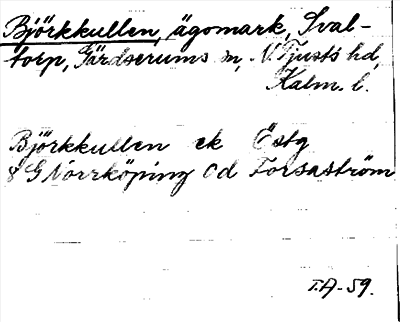 Björkkullen, ägomark, Sval-
torp, Gärdserums sn, N. Tjusts hd,
Kalm. l.
Björkkullen ek Östg
8 G Norrköping Od Forsaström
T.A-59.